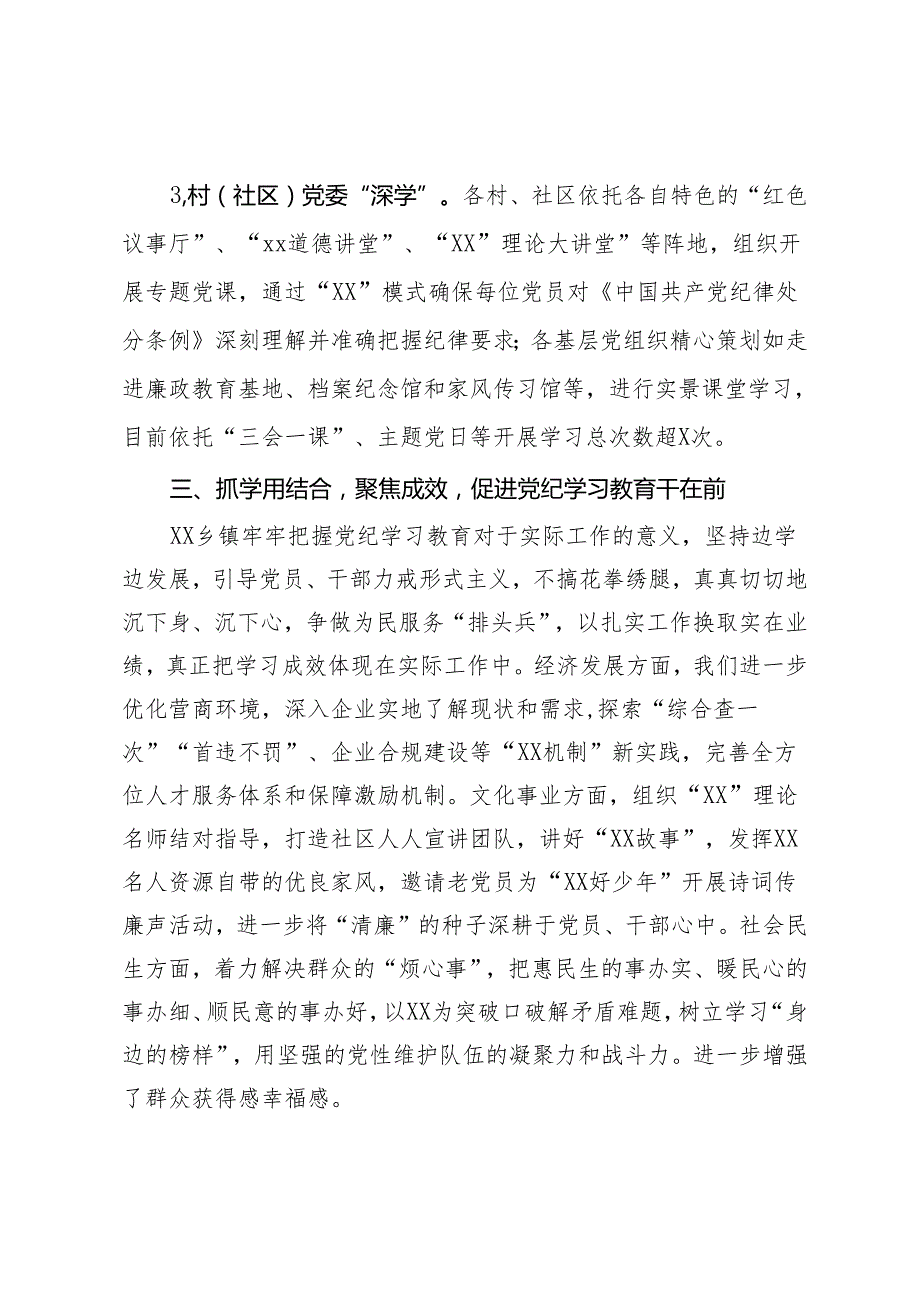 3,村（社区）党委“深学”。各村、社区依托各自特色的“红色
议事厅”、“xx道德讲堂”、“XX”理论大讲堂”等阵地，组织开
展专题党课，通过“XX”模式确保每位党员对《中国共产党纪律处
分条例》深刻理解并准确把握纪律要求；各基层党组织精心策划如走
进廉政教育基地、档案纪念馆和家风传习馆等，进行实景课堂学习，
目前依托“三会一课”、主题党日等开展学习总次数超X次。
三、抓学用结合，聚焦成效，促进党纪学习教育干在前
XX乡镇牢牢把握党纪学习教育对于实际工作的意义，坚持边学
边发展，引导党员、干部力戒形式主义，不搞花拳绣腿，真真切切地
沉下身、沉下心，争做为民服务“排头兵”，以扎实工作换取实在业
绩，真正把学习成效体现在实际工作中。经济发展方面，我们进一步
优化营商环境，深入企业实地了解现状和需求,探索“综合查一
次”“首违不罚”、企业合规建设等“XX机制”新实践，完善全方
位人才服务体系和保障激励机制。文化事业方面，组织“XX”理论
名师结对指导，打造社区人人宣讲团队，讲好“XX故事”，发挥XX
名人资源自带的优良家风，邀请老党员为“XX好少年”开展诗词传
廉声活动，进一步将“清廉”的种子深耕于党员、干部心中。社会民
生方面，着力解决群众的“烦心事”，把惠民生的事办实、暖民心的
事办细、顺民意的事办好，以XX为突破口破解矛盾难题，树立学习“身
边的榜样”，用坚强的党性维护队伍的凝聚力和战斗力。进一步增强
了群众获得感幸福感。